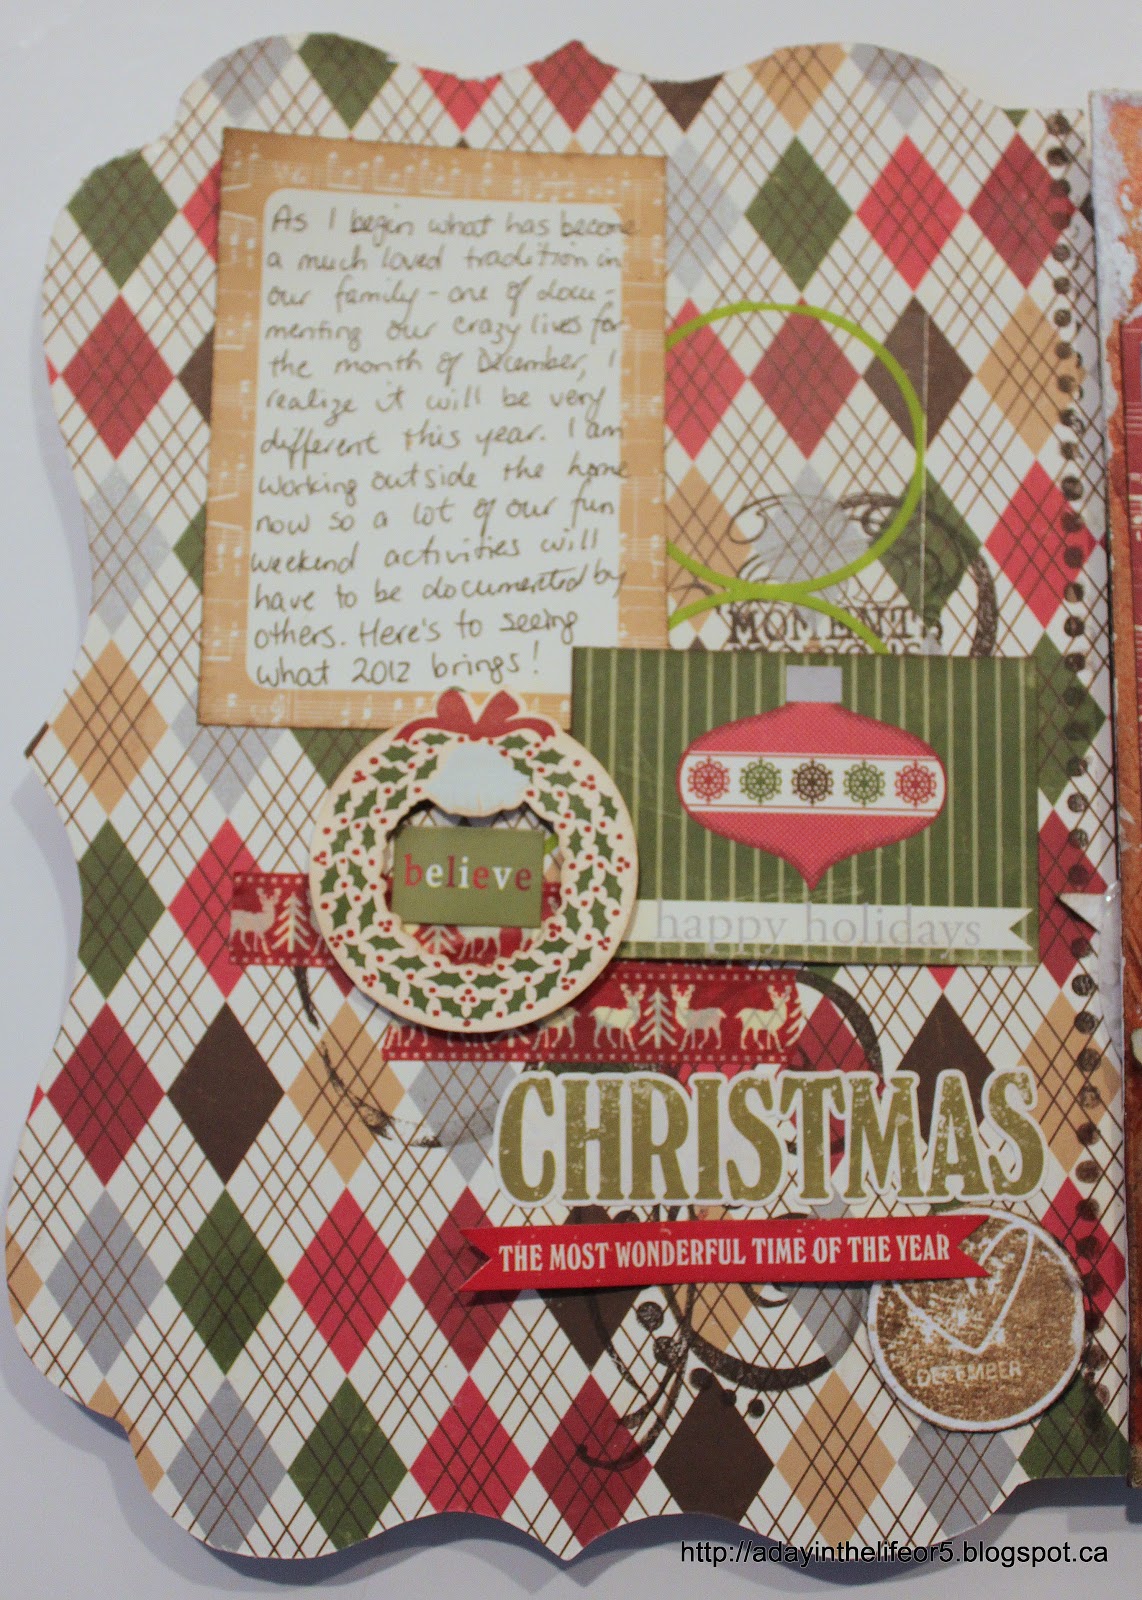 As I begin what has become
a much loved tradition in
our family - one of docu-
menting our crazy lives for
the month of December, I
realize it will be very
different this year. I am
working outside the home
now so a lot of our fun
weekend activities will
have to be documented by
others. Here's to seeing
what 2012 brings!
MOMENTS
believe
happy holidays
CHRISTMAS
THE MOST WONDERFUL TIME OF THE YEAR
DECEMBER
http://adayinthelifeor5.blogspot.ca